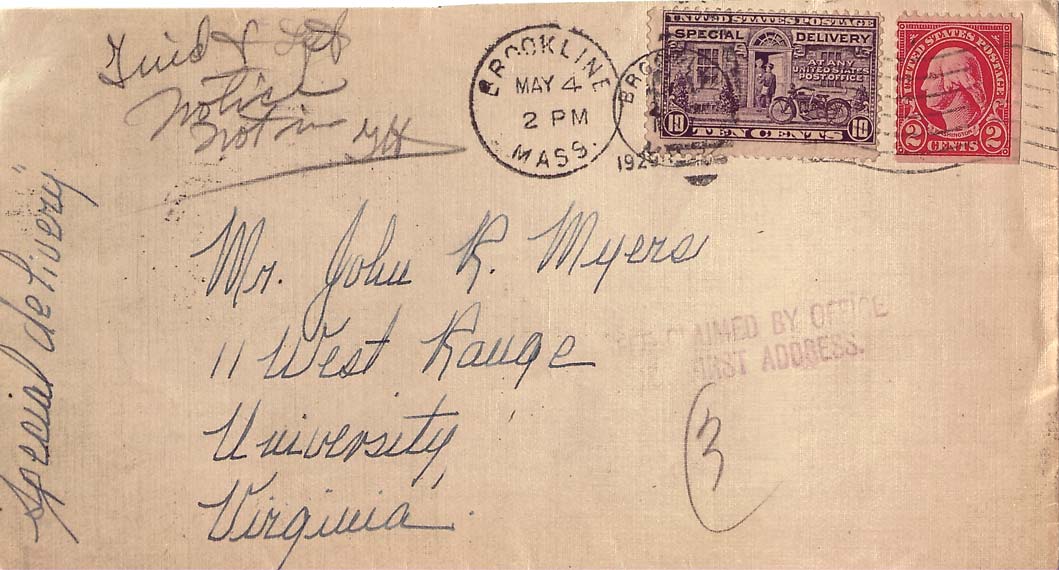 Tried & Left
Notice
Not in
BROOKLINE
MAY 4
2 PM
MASS.
192
UNITED STATES POSTAGE
SPECIAL DELIVERY
AT ANY
UNITED STATES
POST OFFICE
10 TEN CENTS 10
UNITED STATES POSTAGE
WASHINGTON
2 CENTS 2
"Special delivery"
Mr. John R. Myers
11 West Range
University,
Virginia.
CLAIMED BY OFFICE
FIRST ADDRESS.
(3